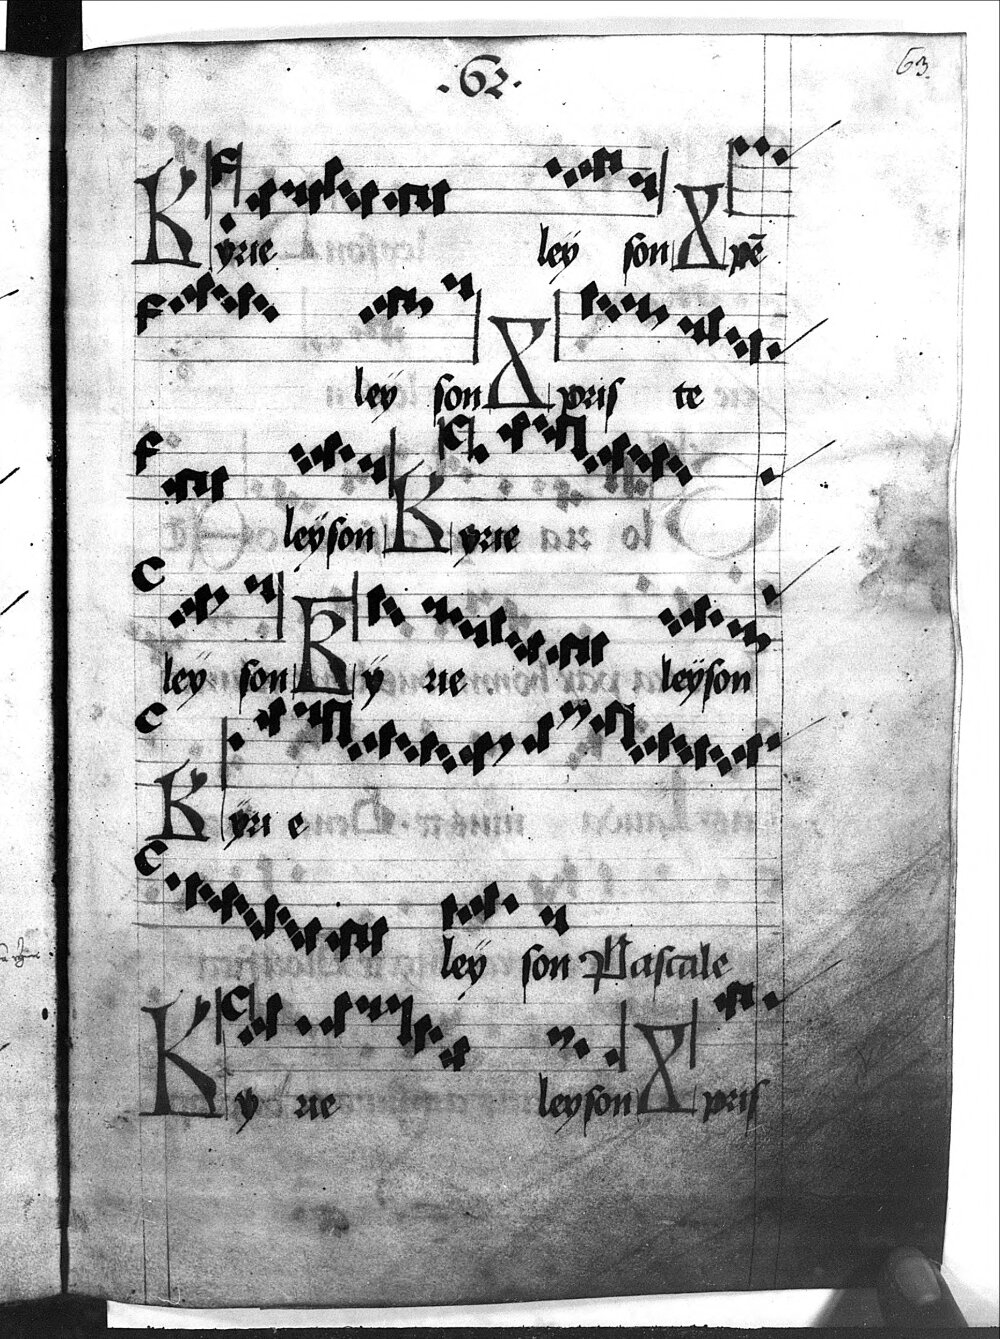 .62.
63.
Kyrie ley son Xpē
ley son Xpris te
leyson Kyrie
ley son Ky rie. leyson
Kyri e
ley son Pascale
Ky rie leyson Xpris